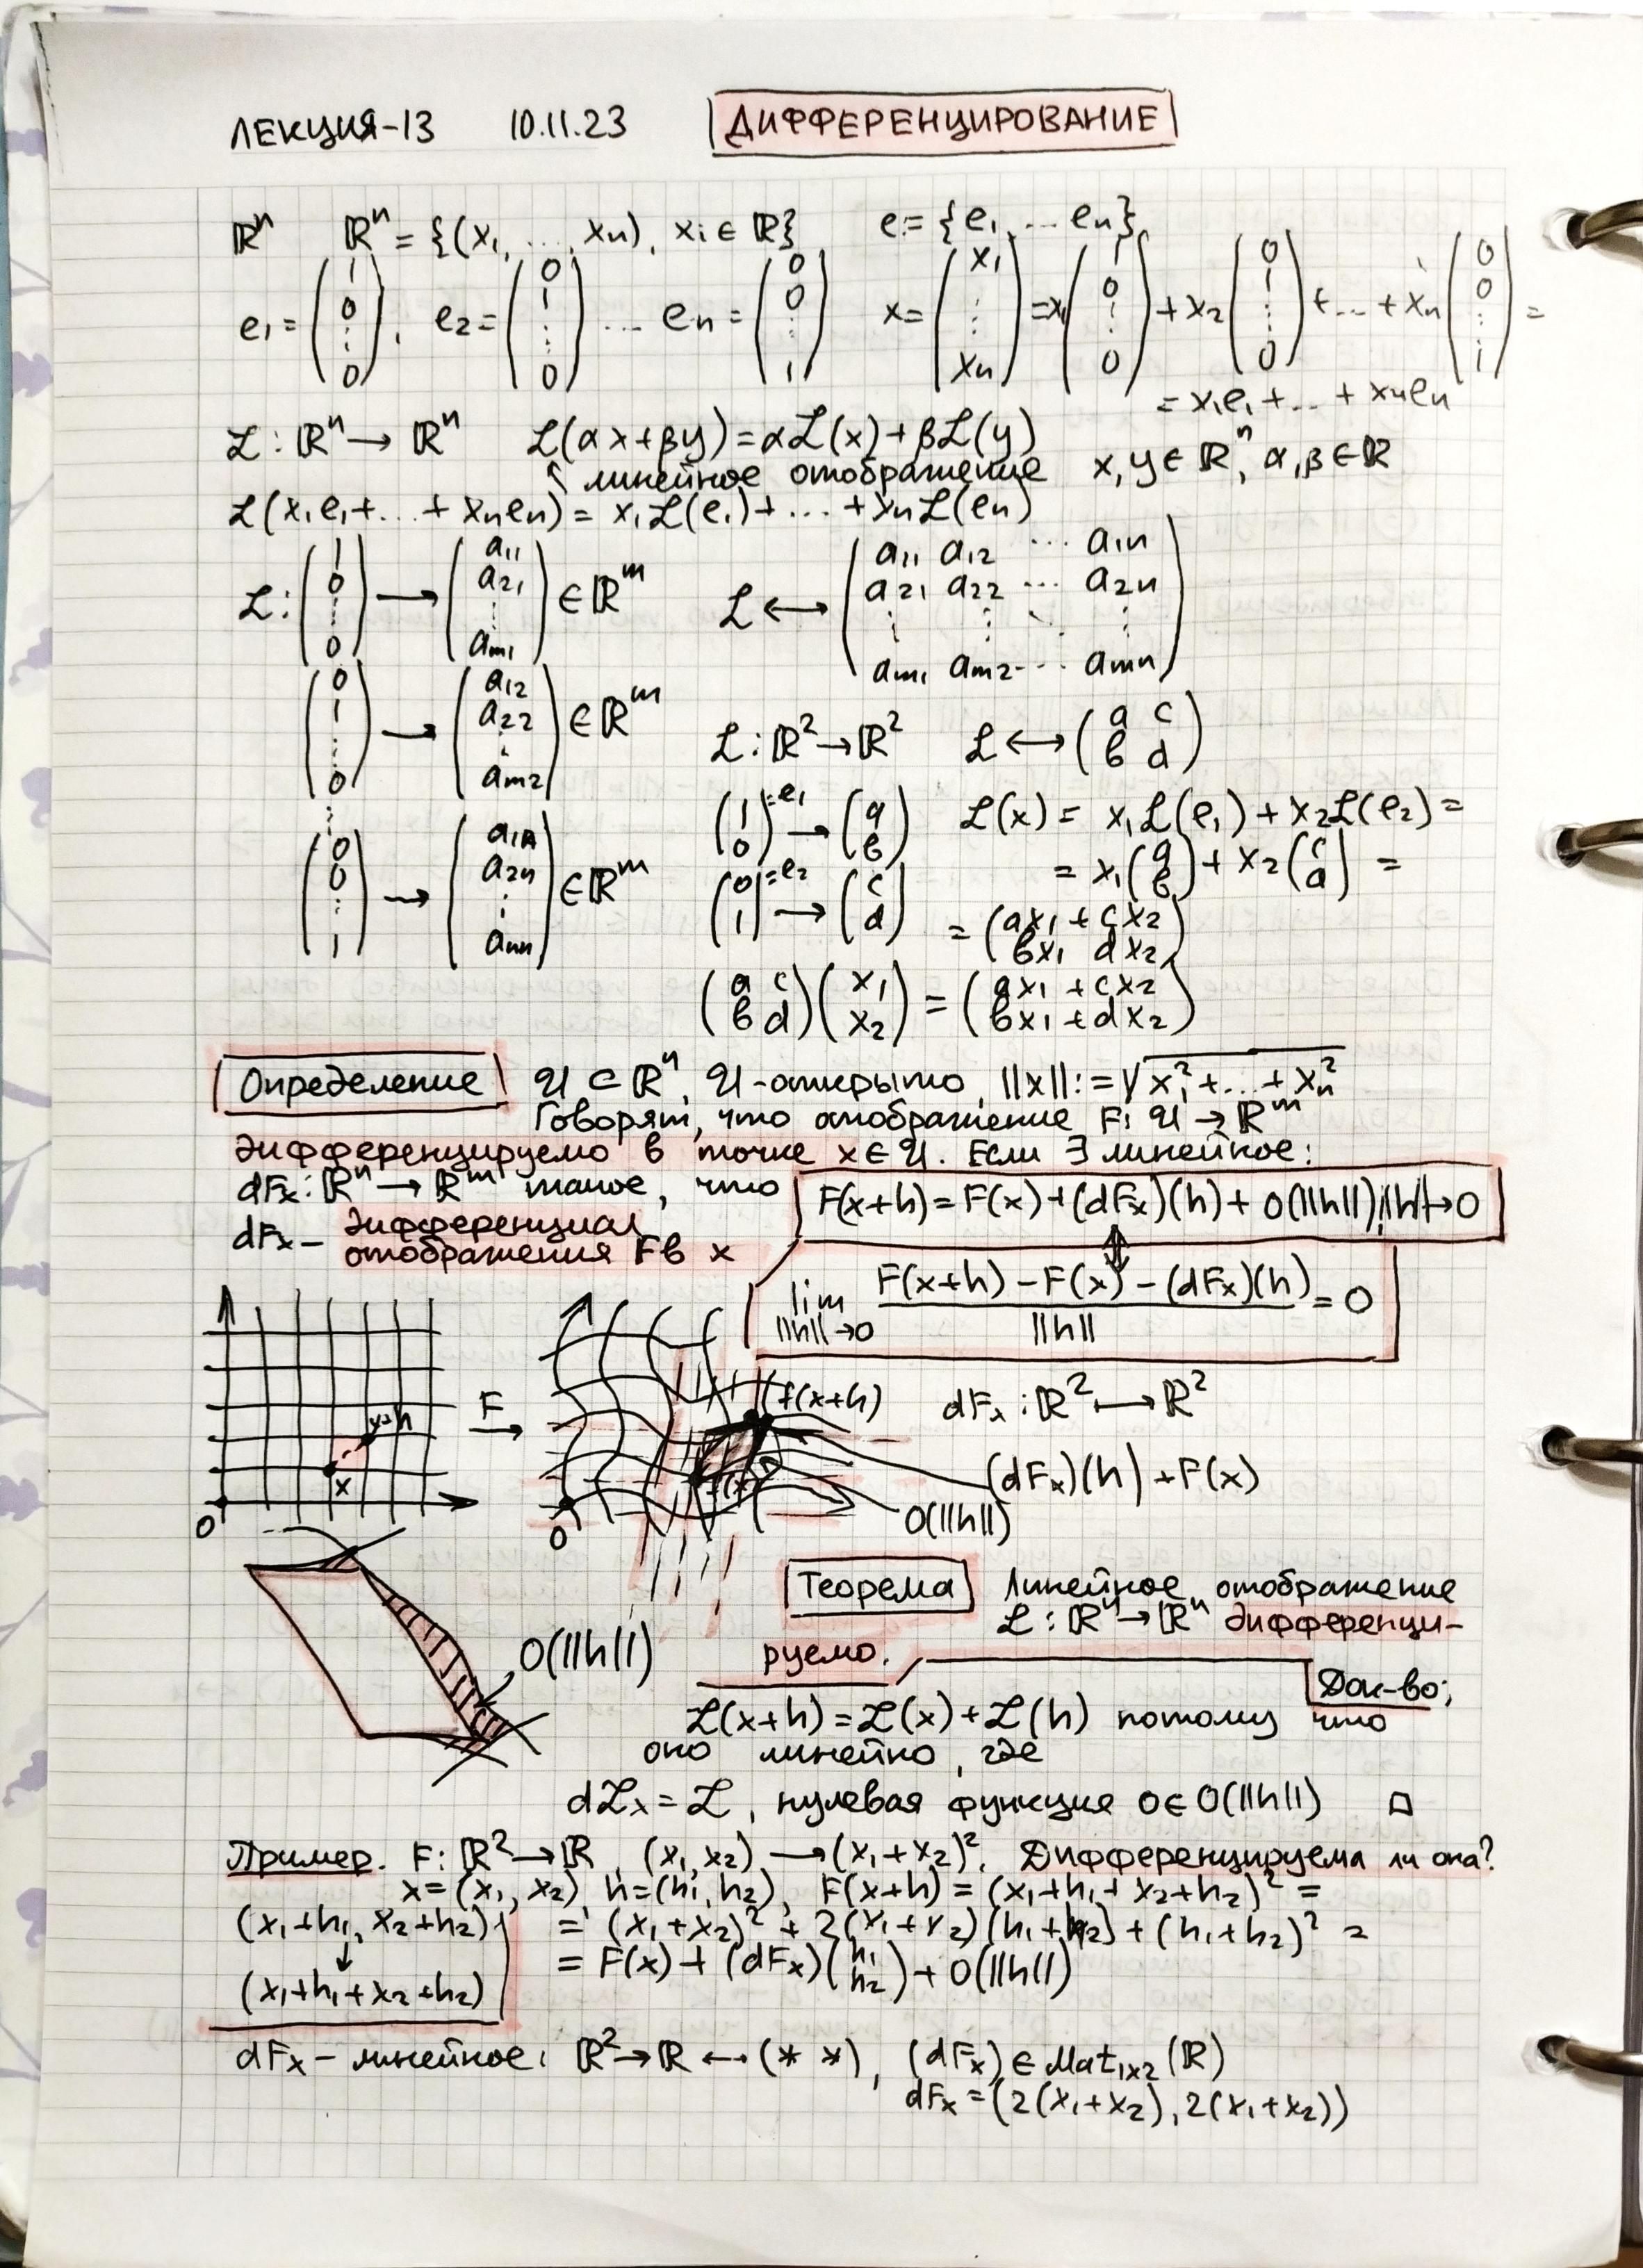 ЛЕКЦИЯ-13 10.11.23 ДИФФЕРЕНЦИРОВАНИЕ
ℝⁿ ℝⁿ = {(x₁, ..., xₙ), xᵢ ∈ ℝ} e = {e₁, ... eₙ}
e₁ = (1 0 ⋮ 0), e₂ = (0 1 ⋮ 0) ... eₙ = (0 0 ⋮ 1) x = (x₁ ⋮ xₙ) = x₁(1 0 ⋮ 0) + x₂(0 1 ⋮ 0) + ... + xₙ(0 0 ⋮ 1) =
= x₁e₁ + ... + xₙeₙ
ℒ: ℝⁿ → ℝⁿ ℒ(αx+βy) = αℒ(x) + βℒ(y)
↖ линейное отображение x, y ∈ ℝⁿ, α, β ∈ ℝ
ℒ(x₁e₁ + ... + xₙeₙ) = x₁ℒ(e₁) + ... + xₙℒ(eₙ)
ℒ: (1 0 ⋮ 0) → (a₁₁ a₂₁ ⋮ aₘ₁) ∈ ℝᵐ ℒ ↔ (a₁₁ a₁₂ ... a₁ₙ
a₂₁ a₂₂ ... a₂ₙ
⋮ ⋮ ⋮
aₘ₁ aₘ₂ ... aₘₙ)
(0 1 ⋮ 0) → (a₁₂ a₂₂ ⋮ aₘ₂) ∈ ℝᵐ
⋮
(0 0 ⋮ 1) → (a₁ₙ a₂ₙ ⋮ aₘₙ) ∈ ℝᵐ
ℒ: ℝ² → ℝ² ℒ ↔ (a c
в d)
(1 0) = e₁ → (a в) ℒ(x) = x₁ℒ(e₁) + x₂ℒ(e₂) =
= x₁(a в) + x₂(c d) =
(0 1) = e₂ → (c d) = (ax₁ + cx₂
вx₁ dx₂)
(a c
в d)(x₁ x₂) = (ax₁ + cx₂
вx₁ + dx₂)
Определение 𝒰 ⊂ ℝⁿ, 𝒰-открыто, ||x|| := √x₁² + ... + xₙ²
Говорят, что отображение F: 𝒰 → ℝᵐ
дифференцируемо в точке x ∈ 𝒰. Если ∃ линейное:
dFₓ: ℝⁿ → ℝᵐ такое, что F(x+h) = F(x) + (dFₓ)(h) + o(||h||), ||h|| → 0
dFₓ – дифференциал
отображения F в x
⇕
lim ||h||→0 F(x+h) – F(x) – (dFₓ)(h) / ||h|| = 0
x+h
x
0
F →
f(x+h)
f(x)
h
0
dFₓ: ℝ² ⟼ ℝ²
(dFₓ)(h) + F(x)
o(||h||)
o(||h||)
Теорема Линейное отображение
ℒ: ℝⁿ → ℝⁿ дифференци-
руемо.
Док-во:
ℒ(x+h) = ℒ(x) + ℒ(h) потому что
оно линейно, где
dℒₓ = ℒ, нулевая функция 0 ∈ o(||h||) □
Пример. F: ℝ² → ℝ, (x₁, x₂) → (x₁+x₂)². Дифференцируема ли она?
x = (x₁, x₂), h = (h₁, h₂), F(x+h) = (x₁+h₁+x₂+h₂)² =
(x₁+h₁, x₂+h₂) = (x₁+x₂)² + 2(x₁+x₂)(h₁+h₂) + (h₁+h₂)² =
↓
(x₁+h₁+x₂+h₂) = F(x) + (dFₓ)(h₁ h₂) + o(||h||)
dFₓ – линейное: ℝ² → ℝ ↔ (* *), (dFₓ) ∈ Mat₁ₓ₂(ℝ)
dFₓ = (2(x₁+x₂), 2(x₁+x₂))